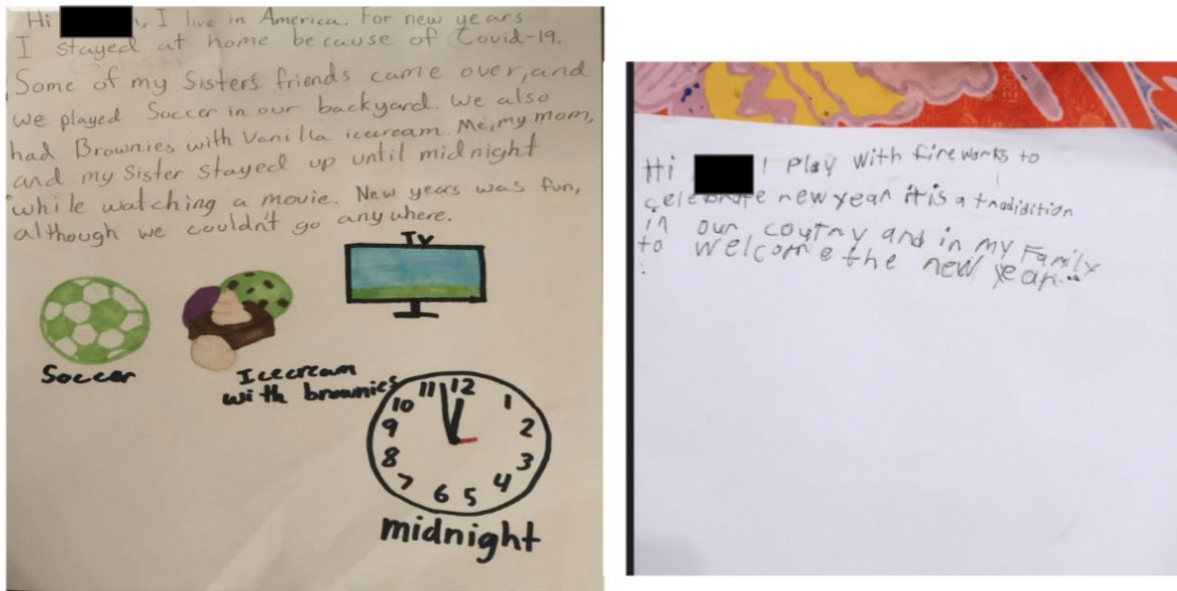 Hi n, I live in America. For new years
I stayed at home because of Covid-19.
Some of my Sisters friends came over, and
we played Soccer in our backyard. We also
had Brownies with Vanilla icecream. Me, my mom,
and my Sister stayed up until midnight
while watching a movie. New years was fun,
although we couldn't go anywhere.
TV
Soccer
Icecream
with brownies
11 12 1
10 2
9 3
8 4
7 6 5
midnight
Hi I Play with fireworks to
celebrate new year it is a tnadidition
in our coutny and in my Family
to welcome the new year...